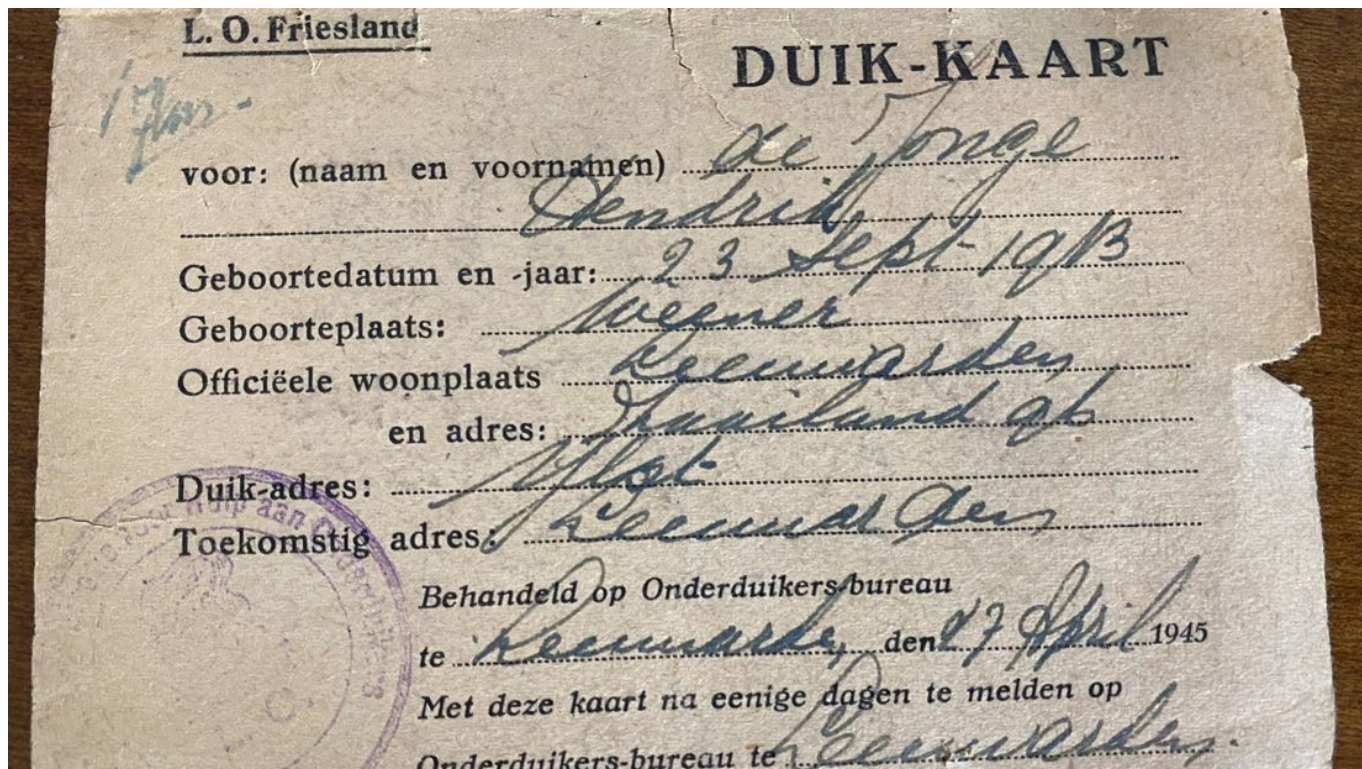 L. O. Friesland
DUIK-KAART
voor: (naam en voornamen) de Jonge
Hendrik
Geboortedatum en -jaar: 23 Sept 1913
Geboorteplaats: Weener
Officiëele woonplaats Leeuwarden
en adres: Zaailand
Duik-adres: Vlot
Toekomstig adres: Leeuwarden
Behandeld op Onderduikers-bureau
te Leeuwarden, den 27 April 1945
Met deze kaart na eenige dagen te melden op
Onderduikers-bureau te Leeuwarden.
voor Hulp aan Onderduikers